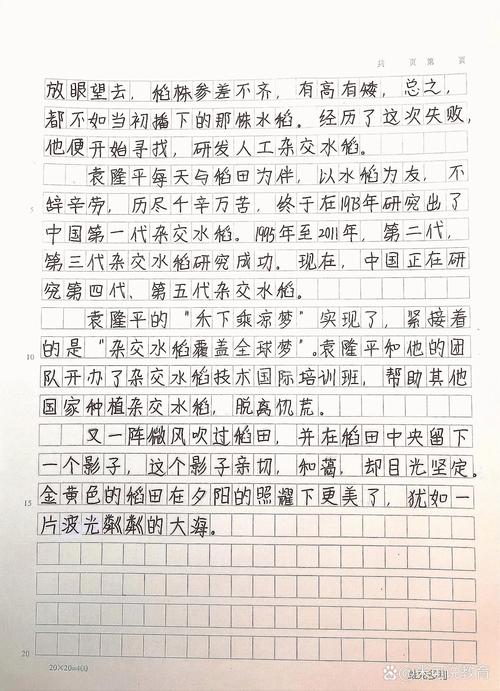 共 页 第 页
放眼望去，稻株参差不齐，有高有矮，总之，
都不如当初播下的那株水稻。经历了这次失败，
他便开始寻找，研发人工杂交水稻。
袁隆平每天与稻田为伴，以水稻为友，不
5
辞辛劳，历尽千辛万苦，终于在1973年研究出了
中国第一代杂交水稻。1995年至2011年，第二代，
第三代杂交水稻研究成功。现在，中国正在研
究第四代、第五代杂交水稻。
袁隆平的“禾下乘凉梦”实现了，紧接着
10
的是“杂交水稻覆盖全球梦”。袁隆平和他的团
队开办了杂交水稻技术国际培训班，帮助其他
国家种植杂交水稻，脱离饥荒。
又一阵微风吹过稻田，并在稻田中央留下
一个影子，这个影子亲切，和蔼，却目光坚定。
15
金黄色的稻田在夕阳的照耀下更美了，犹如一
片波光粼粼的大海。
20
20×20=400